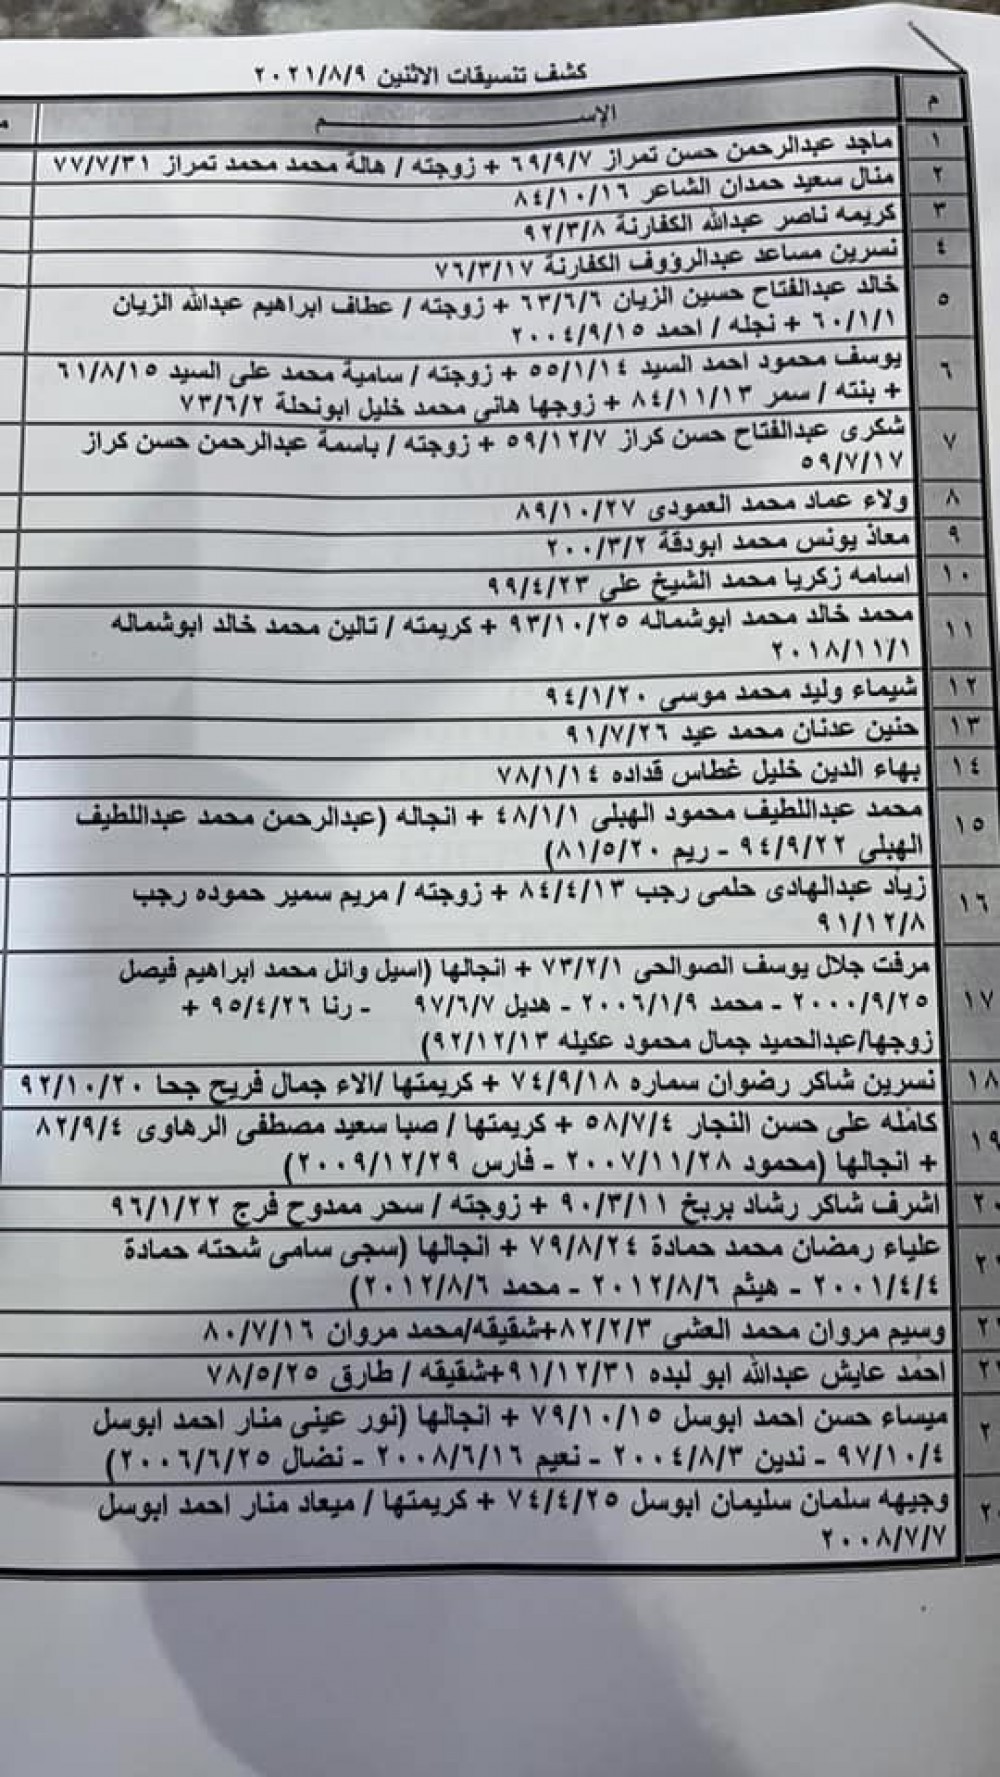 كشف تنسيقات الاثنين ٢٠٢١/٨/٩
م الإســـــــــــــم
١ ماجد عبدالرحمن حسن تمراز ٦٩/٩/٧ + زوجته / هالة محمد محمد تمراز ٧٧/٧/٣١
٢ منال سعيد حمدان الشاعر ٨٤/١٠/١٦
٣ كريمه ناصر عبدالله الكفارنة ٩٢/٣/٨
٤ نسرين مساعد عبدالرؤوف الكفارنة ٧٦/٣/١٧
٥ خالد عبدالفتاح حسين الزيان ٦٣/٦/٦ + زوجته / عطاف ابراهيم عبدالله الزيان
٦٠/١/١ + نجله / احمد ٢٠٠٤/٩/١٥
٦ يوسف محمود احمد السيد ٥٥/١/١٤ + زوجته / سامية محمد على السيد ٦١/٨/١٥
+ بنته / سمر ٨٤/١١/١٣ + زوجها هاني محمد خليل ابونحلة ٧٣/٦/٢
٧ شكرى عبدالفتاح حسن كراز ٥٩/١٢/٧ + زوجته / باسمة عبدالرحمن حسن كراز
٥٩/٧/١٧
٨ ولاء عماد محمد العمودى ٨٩/١٠/٢٧
٩ معاذ يونس محمد ابودقة ٢٠٠/٣/٢
١٠ اسامه زكريا محمد الشيخ على ٩٩/٤/٢٣
١١ محمد خالد محمد ابوشماله ٩٣/١٠/٢٥ + كريمته / تالين محمد خالد ابوشماله
٢٠١٨/١١/١
١٢ شيماء وليد محمد موسى ٩٤/١/٢٠
١٣ حنين عدنان محمد عيد ٩١/٧/٢٦
١٤ بهاء الدين خليل غطاس قداده ٧٨/١/١٤
١٥ محمد عبداللطيف محمود الهبلى ٤٨/١/١ + انجاله (عبدالرحمن محمد عبداللطيف
الهبلى ٩٤/٩/٢٢ - ريم ٨١/٥/٢٠)
١٦ زياد عبدالهادى حلمى رجب ٨٤/٤/١٣ + زوجته / مريم سمير حموده رجب
٩١/١٢/٨
١٧ مرفت جلال يوسف الصوالحى ٧٣/٢/١ + انجالها (اسيل وائل محمد ابراهيم فيصل
٢٠٠٠/٩/٢٥ - محمد ٢٠٠٦/١/٩ - هديل ٩٧/٦/٧ - رنا ٩٥/٤/٢٦ +
زوجها/عبدالحميد جمال محمود عكيله ٩٢/١٢/١٣)
١٨ نسرين شاكر رضوان سماره ٧٤/٩/١٨ + كريمتها /الاء جمال فريح جحا ٩٢/١٠/٢٠
١٩ كامله على حسن النجار ٥٨/٧/٤ + كريمتها / صبا سعيد مصطفى الرهاوى ٨٢/٩/٤
+ انجالها (محمود ٢٠٠٧/١١/٢٨ - فارس ٢٠٠٩/١٢/٢٩)
اشرف شاكر رشاد بربخ ٩٠/٣/١١ + زوجته / سحر ممدوح فرج ٩٦/١/٢٢
علياء رمضان محمد حمادة ٧٩/٨/٢٤ + انجالها (سجى سامى شحته حمادة
٢٠٠١/٤/٤ - هيثم ٢٠١٢/٨/٦ - محمد ٢٠١٢/٨/٦)
وسيم مروان محمد العشى ٨٢/٢/٣+شقيقه/محمد مروان ٨٠/٧/١٦
احمد عايش عبدالله ابو لبده ٩١/١٢/٣١+شقيقه / طارق ٧٨/٥/٢٥
ميساء حسن احمد ابوسل ٧٩/١٠/١٥ + انجالها (نور عينى منار احمد ابوسل
٩٧/١٠/٤ - ندين ٢٠٠٤/٨/٣ - نعيم ٢٠٠٨/٦/١٦ - نضال ٢٠٠٦/٦/٢٥)
وجيهه سلمان سليمان ابوسل ٧٤/٤/٢٥ + كريمتها / ميعاد منار احمد ابوسل
٢٠٠٨/٧/٧